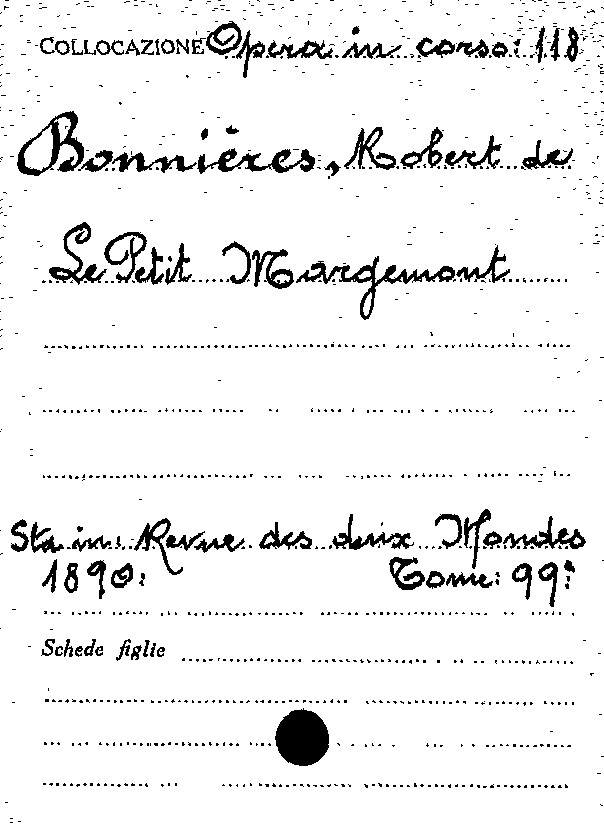 COLLOCAZIONE Opera in corso: 118
Bonnières, Robert de
Le Petit Margemont
Sta in: Revue des deux Mondes
1890: Tome: 99:
Schede figlie